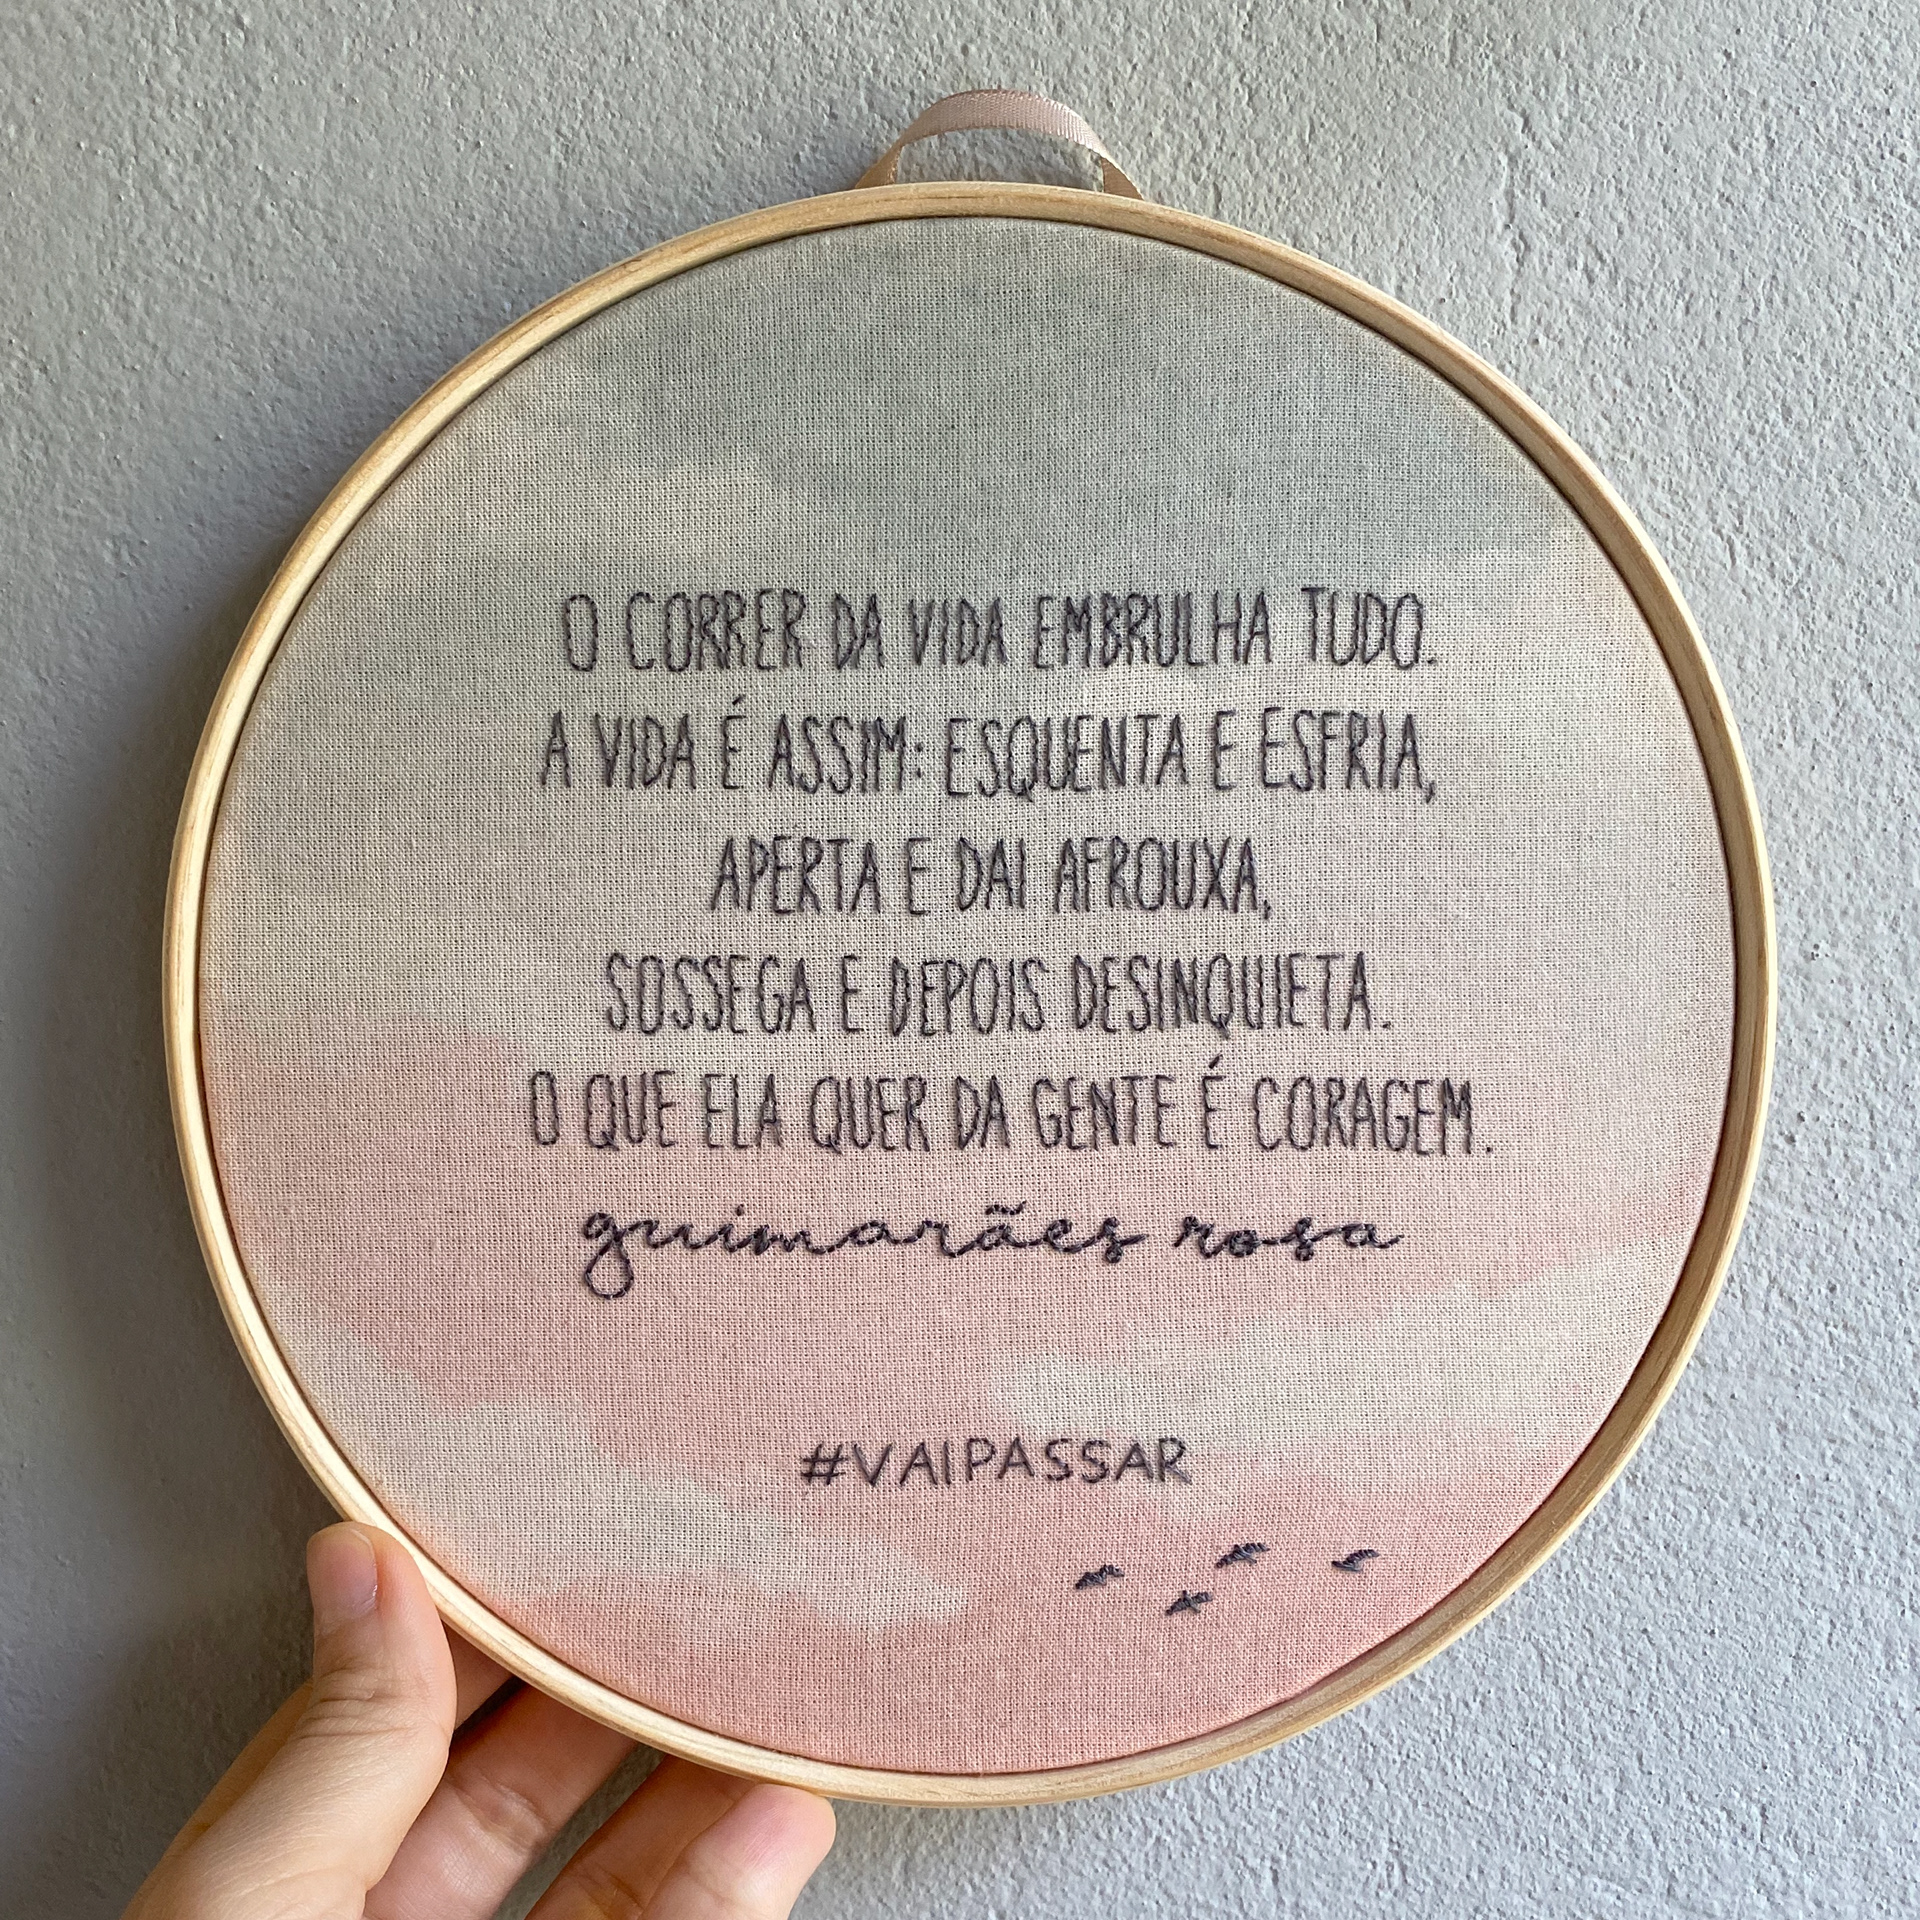 O CORRER DA VIDA EMBRULHA TUDO.
A VIDA É ASSIM: ESQUENTA E ESFRIA,
APERTA E DAI AFROUXA,
SOSSEGA E DEPOIS DESINQUIETA.
O QUE ELA QUER DA GENTE É CORAGEM.
guimarães rosa
#VAIPASSAR